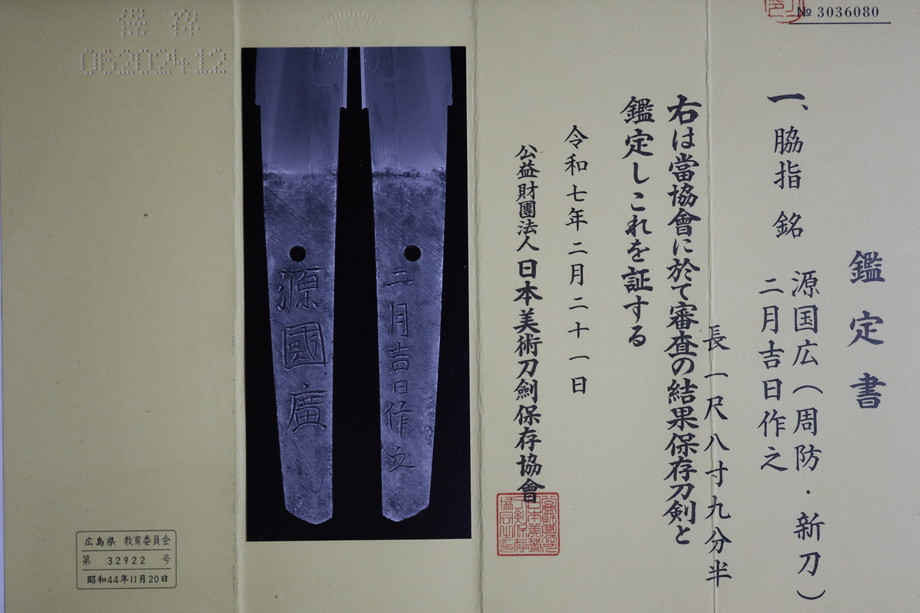 № 3036080
鑑定書
一、脇指 銘 源国広（周防・新刀）
二月吉日作之
長一尺八寸九分半
右は當協會に於て審査の結果保存刀剣と
鑑定しこれを証する
令和七年二月二十一日
公益財團法人日本美術刀劍保存協會
源國廣
二月吉日作之
保存
06202412
広島県 教育委員会
第 32922 号
昭和44年11月20日